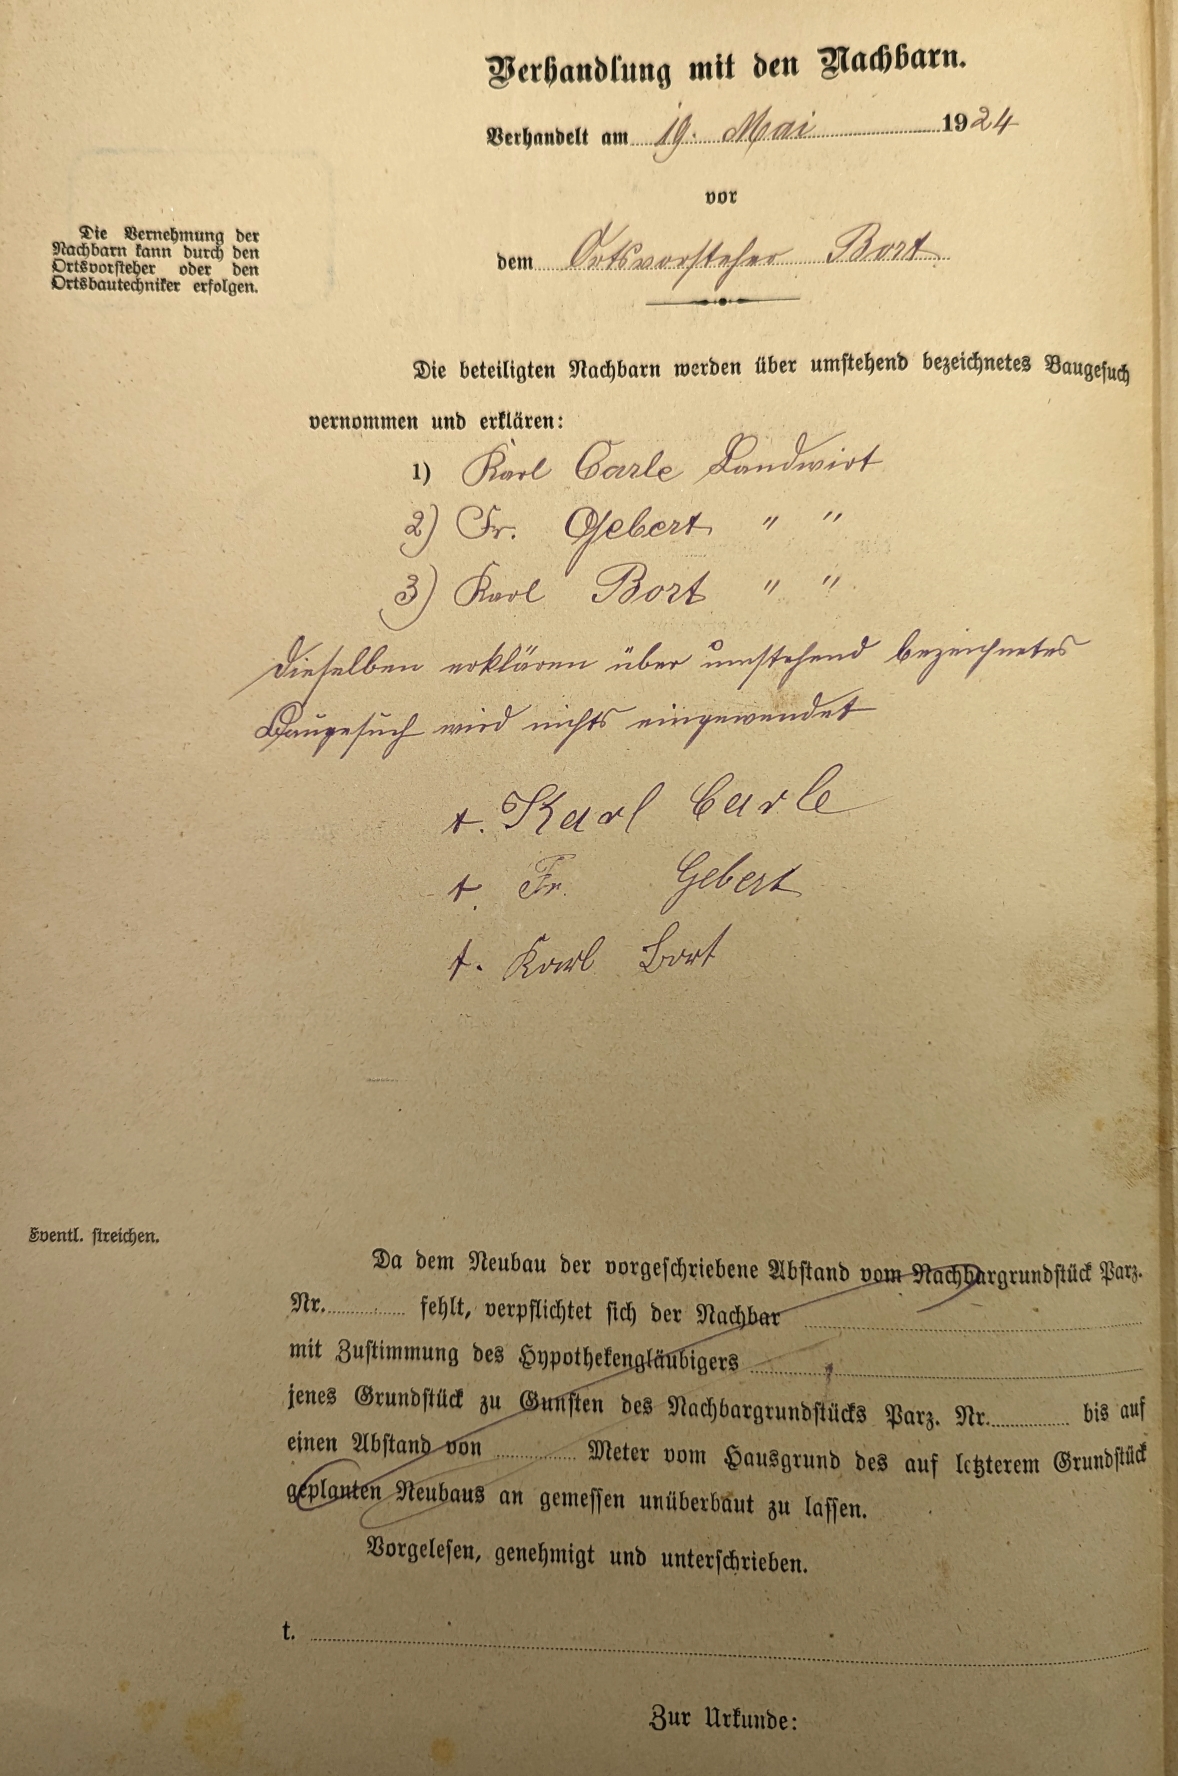 Verhandlung mit den Nachbarn.
Verhandelt am 19. Mai 1924
vor
dem Ortsvorsteher Bort
Die Vernehmung der
Nachbarn kann durch den
Ortsvorsteher oder den
Ortsbautechniker erfolgen.
Die beteiligten Nachbarn werden über umstehend bezeichnetes Baugesuch
vernommen und erklären:
1) Karl Carle Landwirt
2) Fr. Gebert " "
3) Karl Bort " "
Dieselben erklären über umstehend bezeichnetes
Baugesuch wird nichts eingewendet
t. Karl Carle
t. Fr. Gebert
t. Karl Bort
Eventl. streichen.
Da dem Neubau der vorgeschriebene Abstand vom Nachbargrundstück Parz.
Nr. fehlt, verpflichtet sich der Nachbar
mit Zustimmung des Hypothekengläubigers
jenes Grundstück zu Gunsten des Nachbargrundstücks Parz. Nr. bis auf
einen Abstand von Meter vom Hausgrund des auf letzterem Grundstück
geplanten Neubaus an gemessen unüberbaut zu lassen.
Vorgelesen, genehmigt und unterschrieben.
t.
Zur Urkunde: